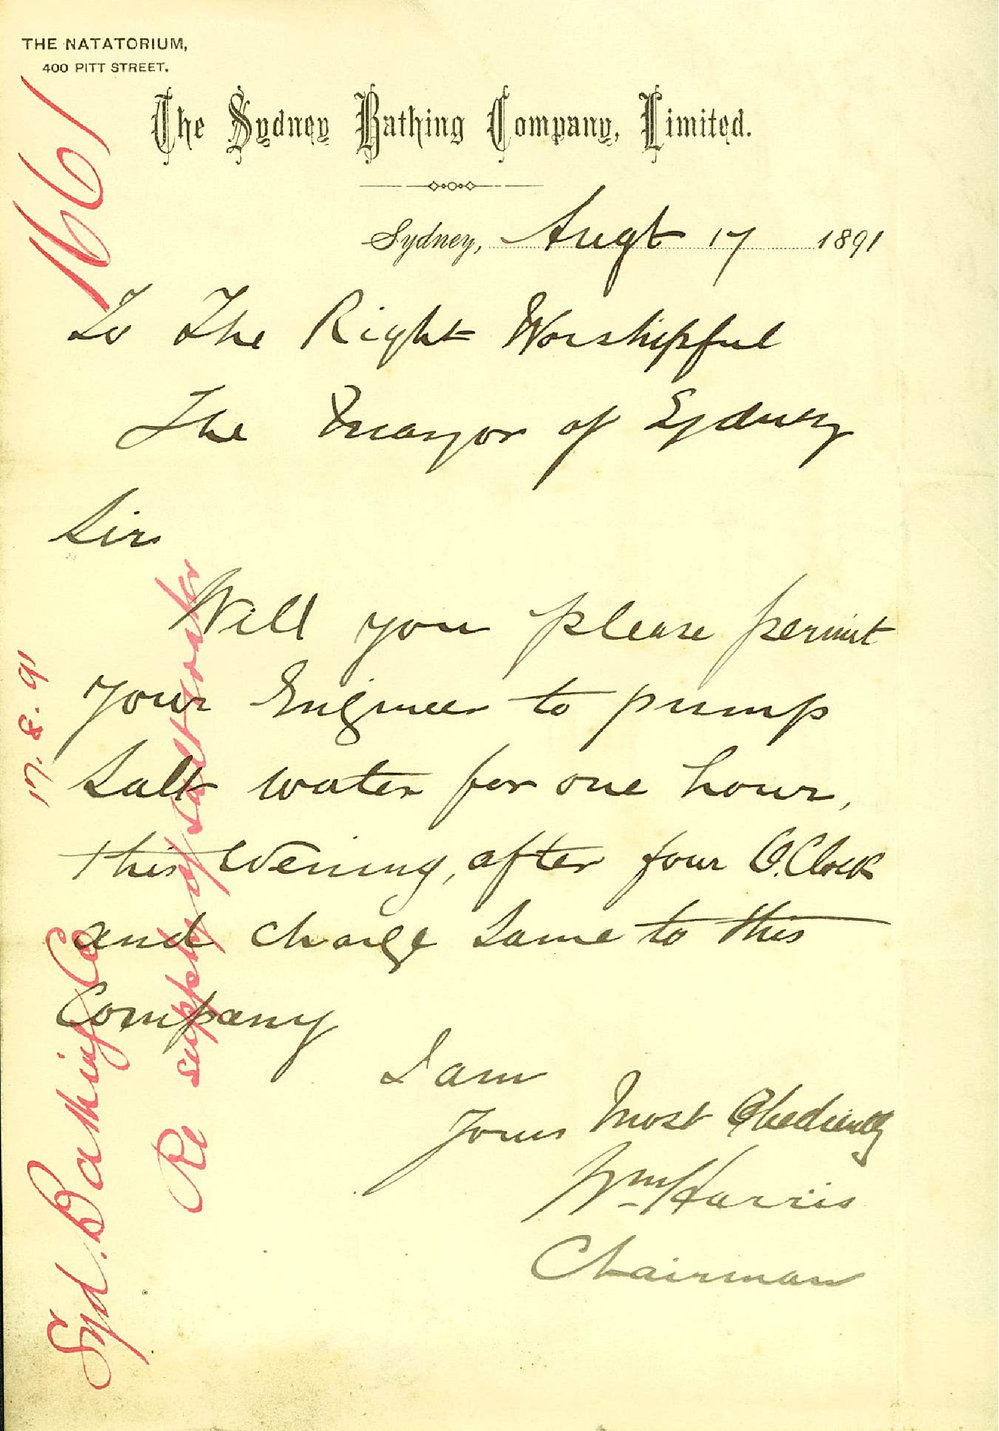 THE NATATORIUM,
400 PITT STREET.
The Sydney Bathing Company, Limited.
Sydney, Augt 17 1891
To The Right Worshipful
The Mayor of Sydney
Sir
Will you please permit
your Engineer to pump
Salt water for one hour,
this Evening, after four O.Clock
and charge same to this
Company
I am
Yours Most Obediently
Wm Harris
Chairman
1661
17.8.91
Syd. Bathing Co
Re supply of salt water